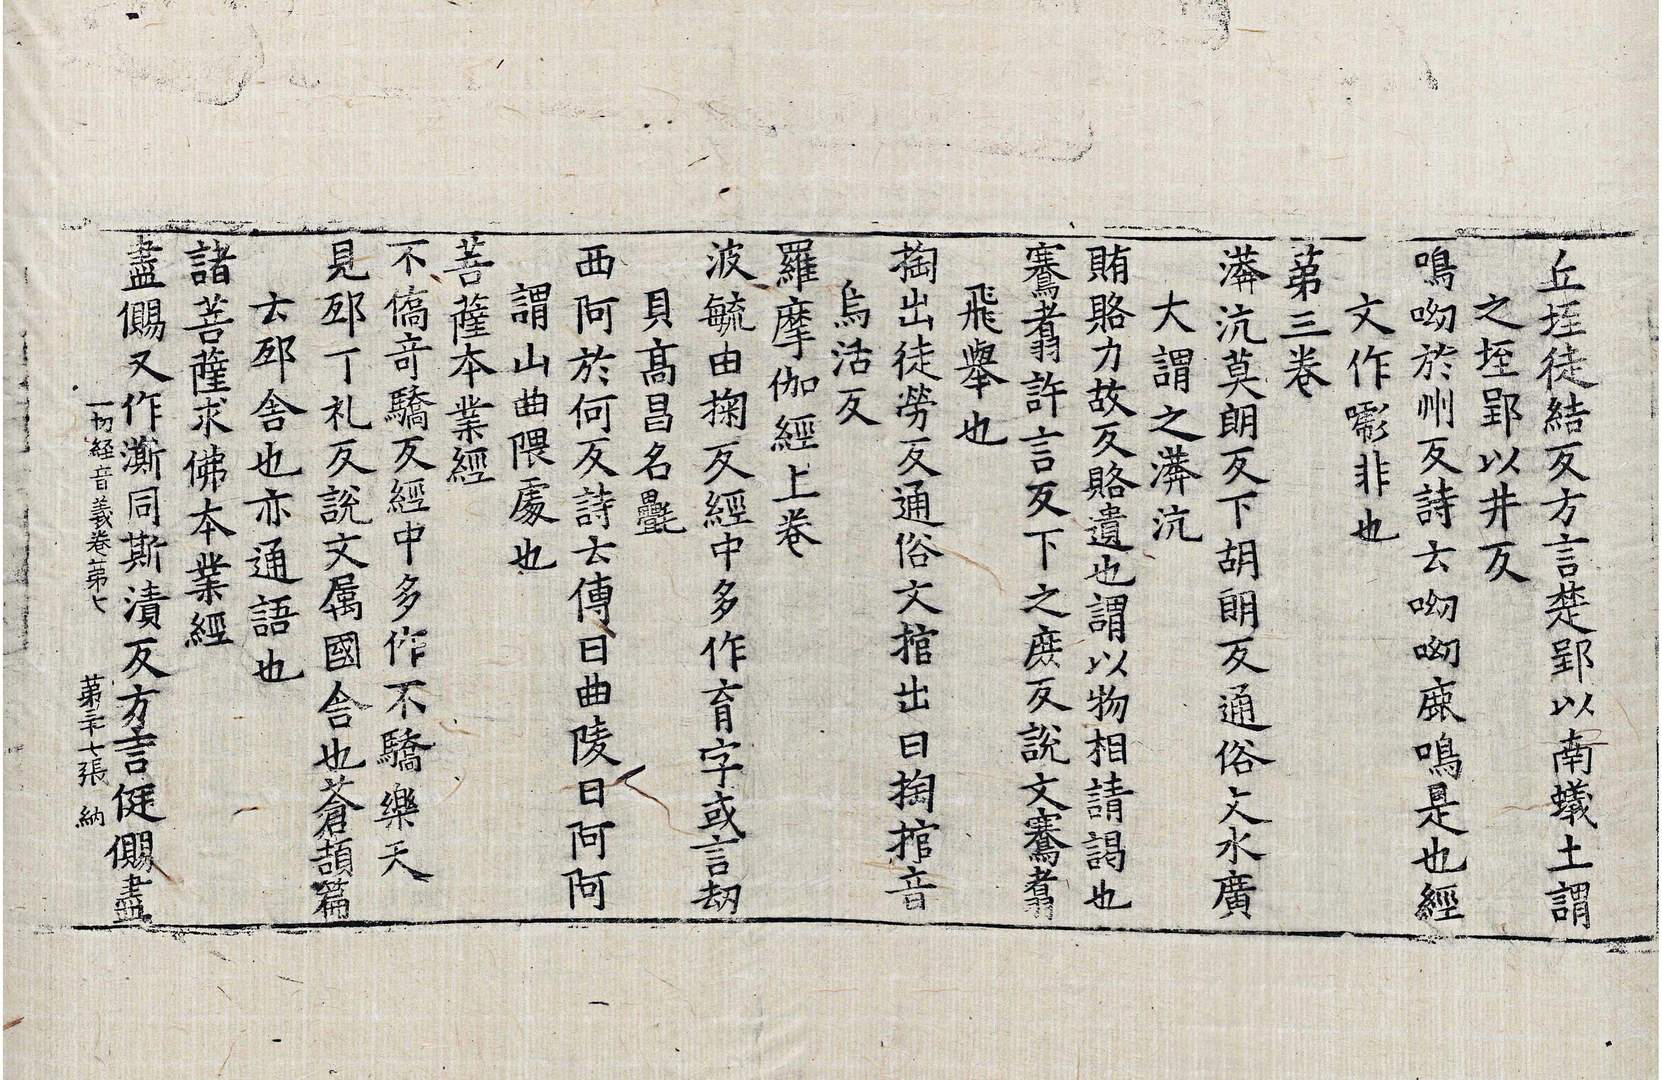 丘垤徒結反方言楚郢以南蟻土謂
之垤郢以井反
鳴呦於州反詩云呦呦鹿鳴是也經
文作嚠非也
苐三卷
漭沆莫朗反下胡朗反通俗文水廣
大謂之漭沆
賄賂力故反賂遺也謂以物相請謁也
騫翥許言反下之庶反說文騫翥
飛舉也
掏出徒勞反通俗文捾出曰掏捾音
烏活反
羅摩伽經上卷
波毓由掬反經中多作育字或言劫
貝高昌名㲲
西阿於何反詩云傳曰曲陵曰阿阿
謂山曲隈處也
菩薩本業經
不僑奇驕反經中多作不驕樂天
見邳丁礼反說文属國舍也蒼頡篇
云邳舍也亦通語也
諸菩薩求佛本業經
盡儩又作澌同斯漬反方言侹儩盡
一切經音義卷苐七 苐三十七張 納